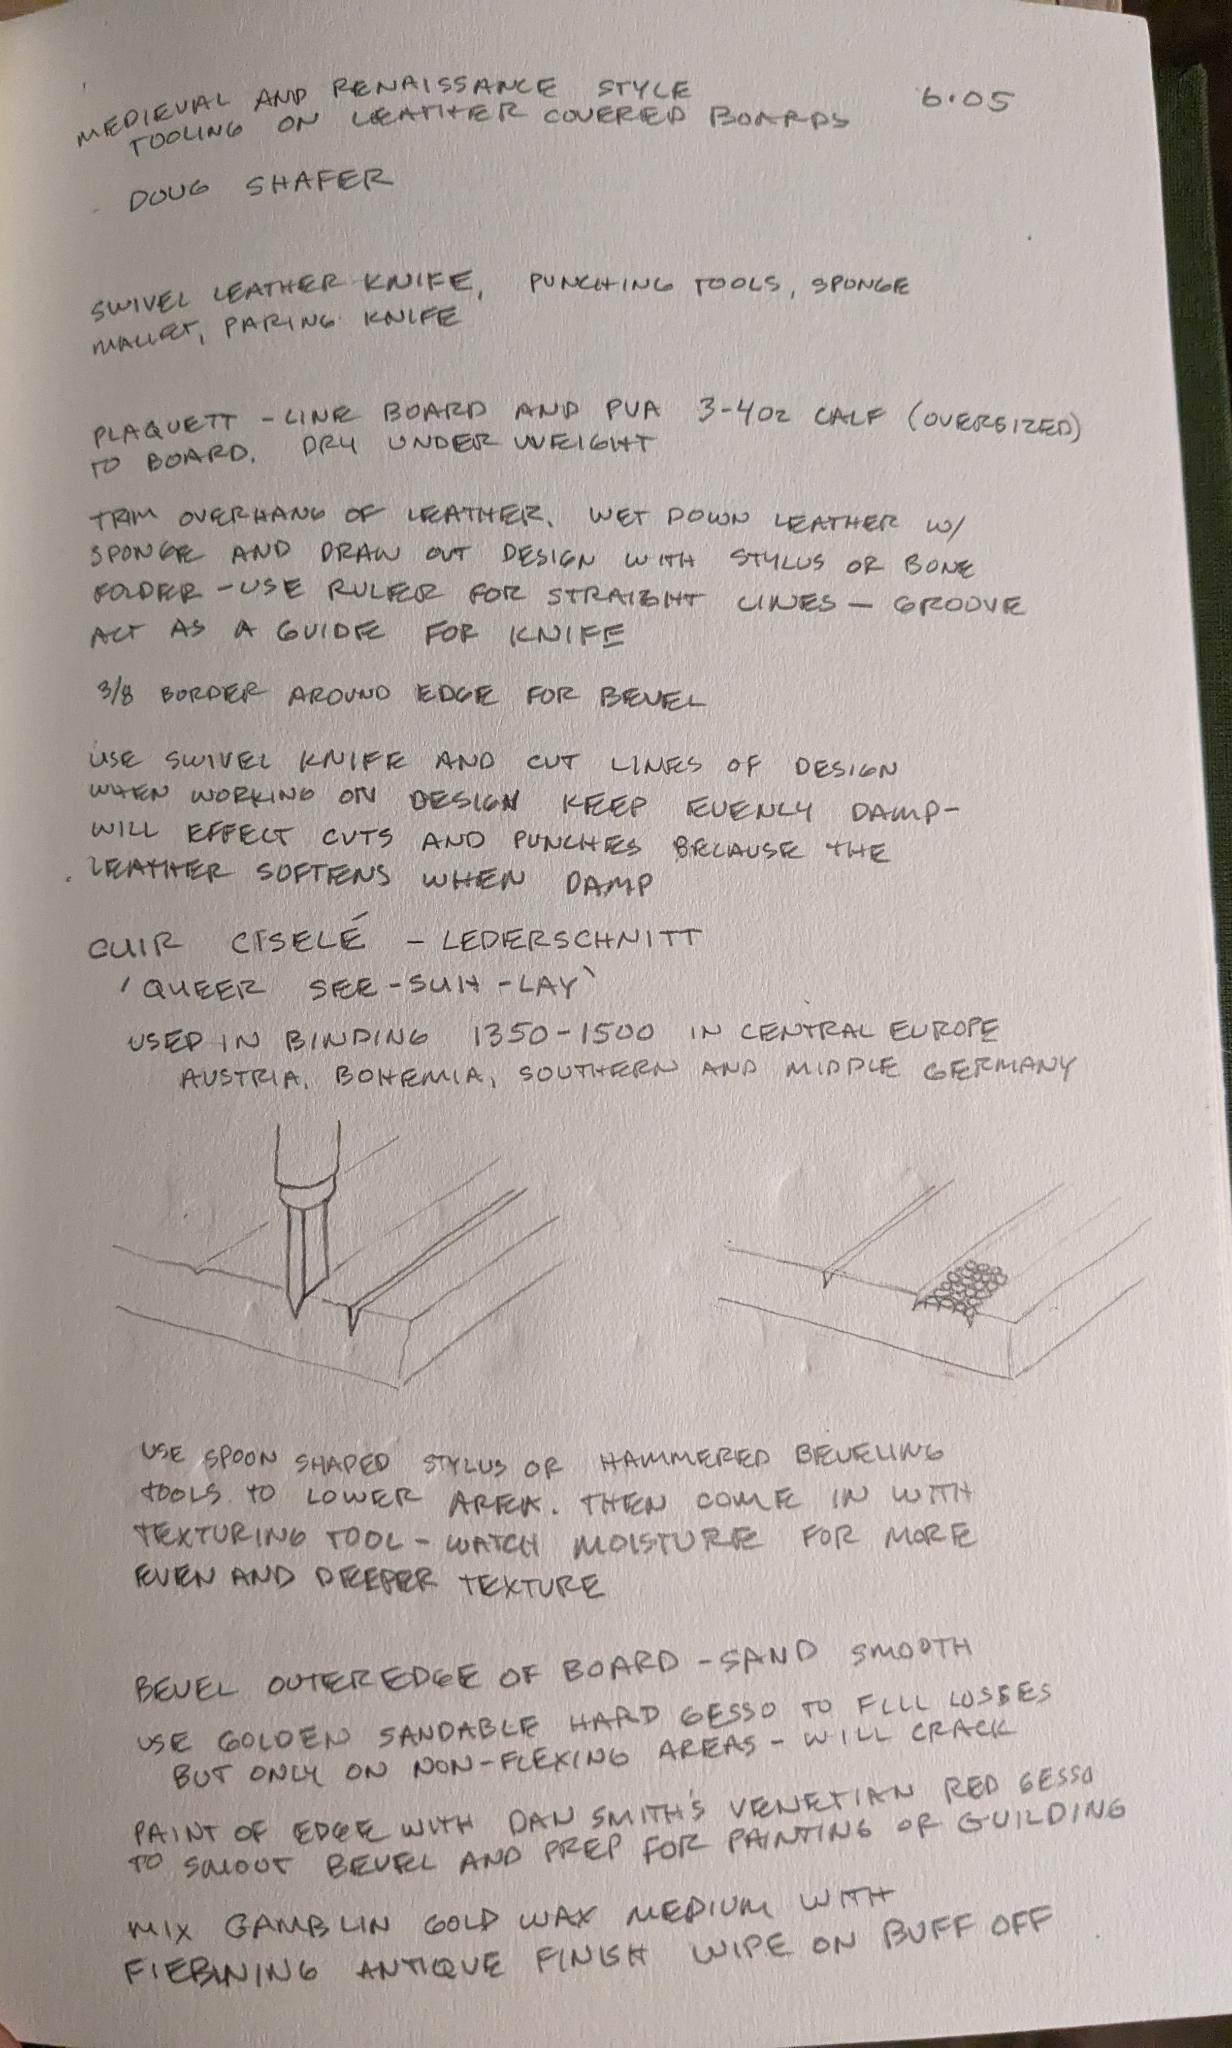 MEDIEVAL AND RENAISSANCE STYLE 6.05
TOOLING ON LEATHER COVERED BOARDS
DOUG SHAFER
SWIVEL LEATHER KNIFE, PUNCHING TOOLS, SPONGE
MALLET, PARING KNIFE
PLAQUETT - LINE BOARD AND PVA 3-4OZ CALF (OVERSIZED)
TO BOARD. DRY UNDER WEIGHT
TRIM OVERHANG OF LEATHER. WET DOWN LEATHER W/
SPONGE AND DRAW OUT DESIGN WITH STYLUS OR BONE
FOLDER - USE RULER FOR STRAIGHT LINES - GROOVE
ACT AS A GUIDE FOR KNIFE
3/8 BORDER AROUND EDGE FOR BEVEL
USE SWIVEL KNIFE AND CUT LINES OF DESIGN
WHEN WORKING ON DESIGN KEEP EVENLY DAMP-
WILL EFFECT CUTS AND PUNCHES BECAUSE THE
LEATHER SOFTENS WHEN DAMP
CUIR CISELÉ - LEDERSCHNITT
'QUEER SEE-SUH-LAY'
USED IN BINDING 1350-1500 IN CENTRAL EUROPE
AUSTRIA, BOHEMIA, SOUTHERN AND MIDDLE GERMANY
USE SPOON SHAPED STYLUS OR HAMMERED BEVELING
TOOLS TO LOWER AREA. THEN COME IN WITH
TEXTURING TOOL - WATCH MOISTURE FOR MORE
EVEN AND DEEPER TEXTURE
BEVEL OUTER EDGE OF BOARD - SAND SMOOTH
USE GOLDEN SANDABLE HARD GESSO TO FILL LOSSES
BUT ONLY ON NON-FLEXING AREAS - WILL CRACK
PAINT OF EDGE WITH DAN SMITH'S VENETIAN RED GESSO
TO SMOOT BEVEL AND PREP FOR PAINTING OR GUILDING
MIX GAMBLIN GOLD WAX MEDIUM WITH
FIEBINING ANTIQUE FINISH WIPE ON BUFF OFF